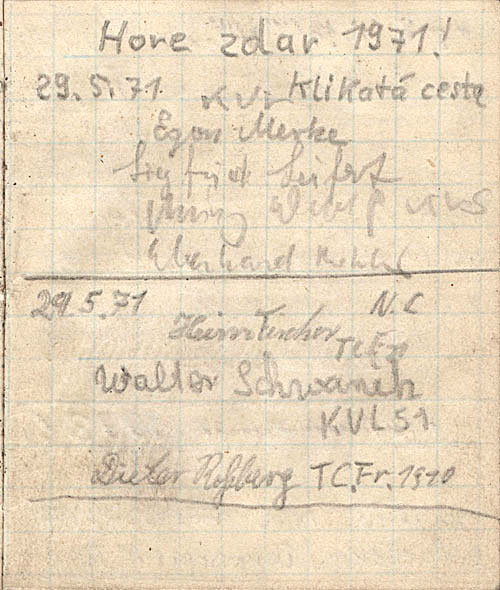 Hore zdar 1971!
29.5.71 KVL Klikatá cesta
Egon Merke
Siegfried Seifert
Eberhard
29.5.71 N.C
Heinz Fischer
Walter
KVL51
Dieter Roßberg T.C.Fr.1910